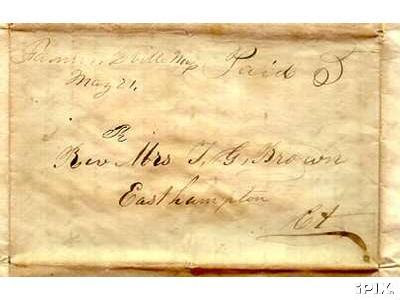 ville Ms Paid 5
May 21.
R
Rev Mrs T. G. Brown
Easthampton
Ct
iPIX.